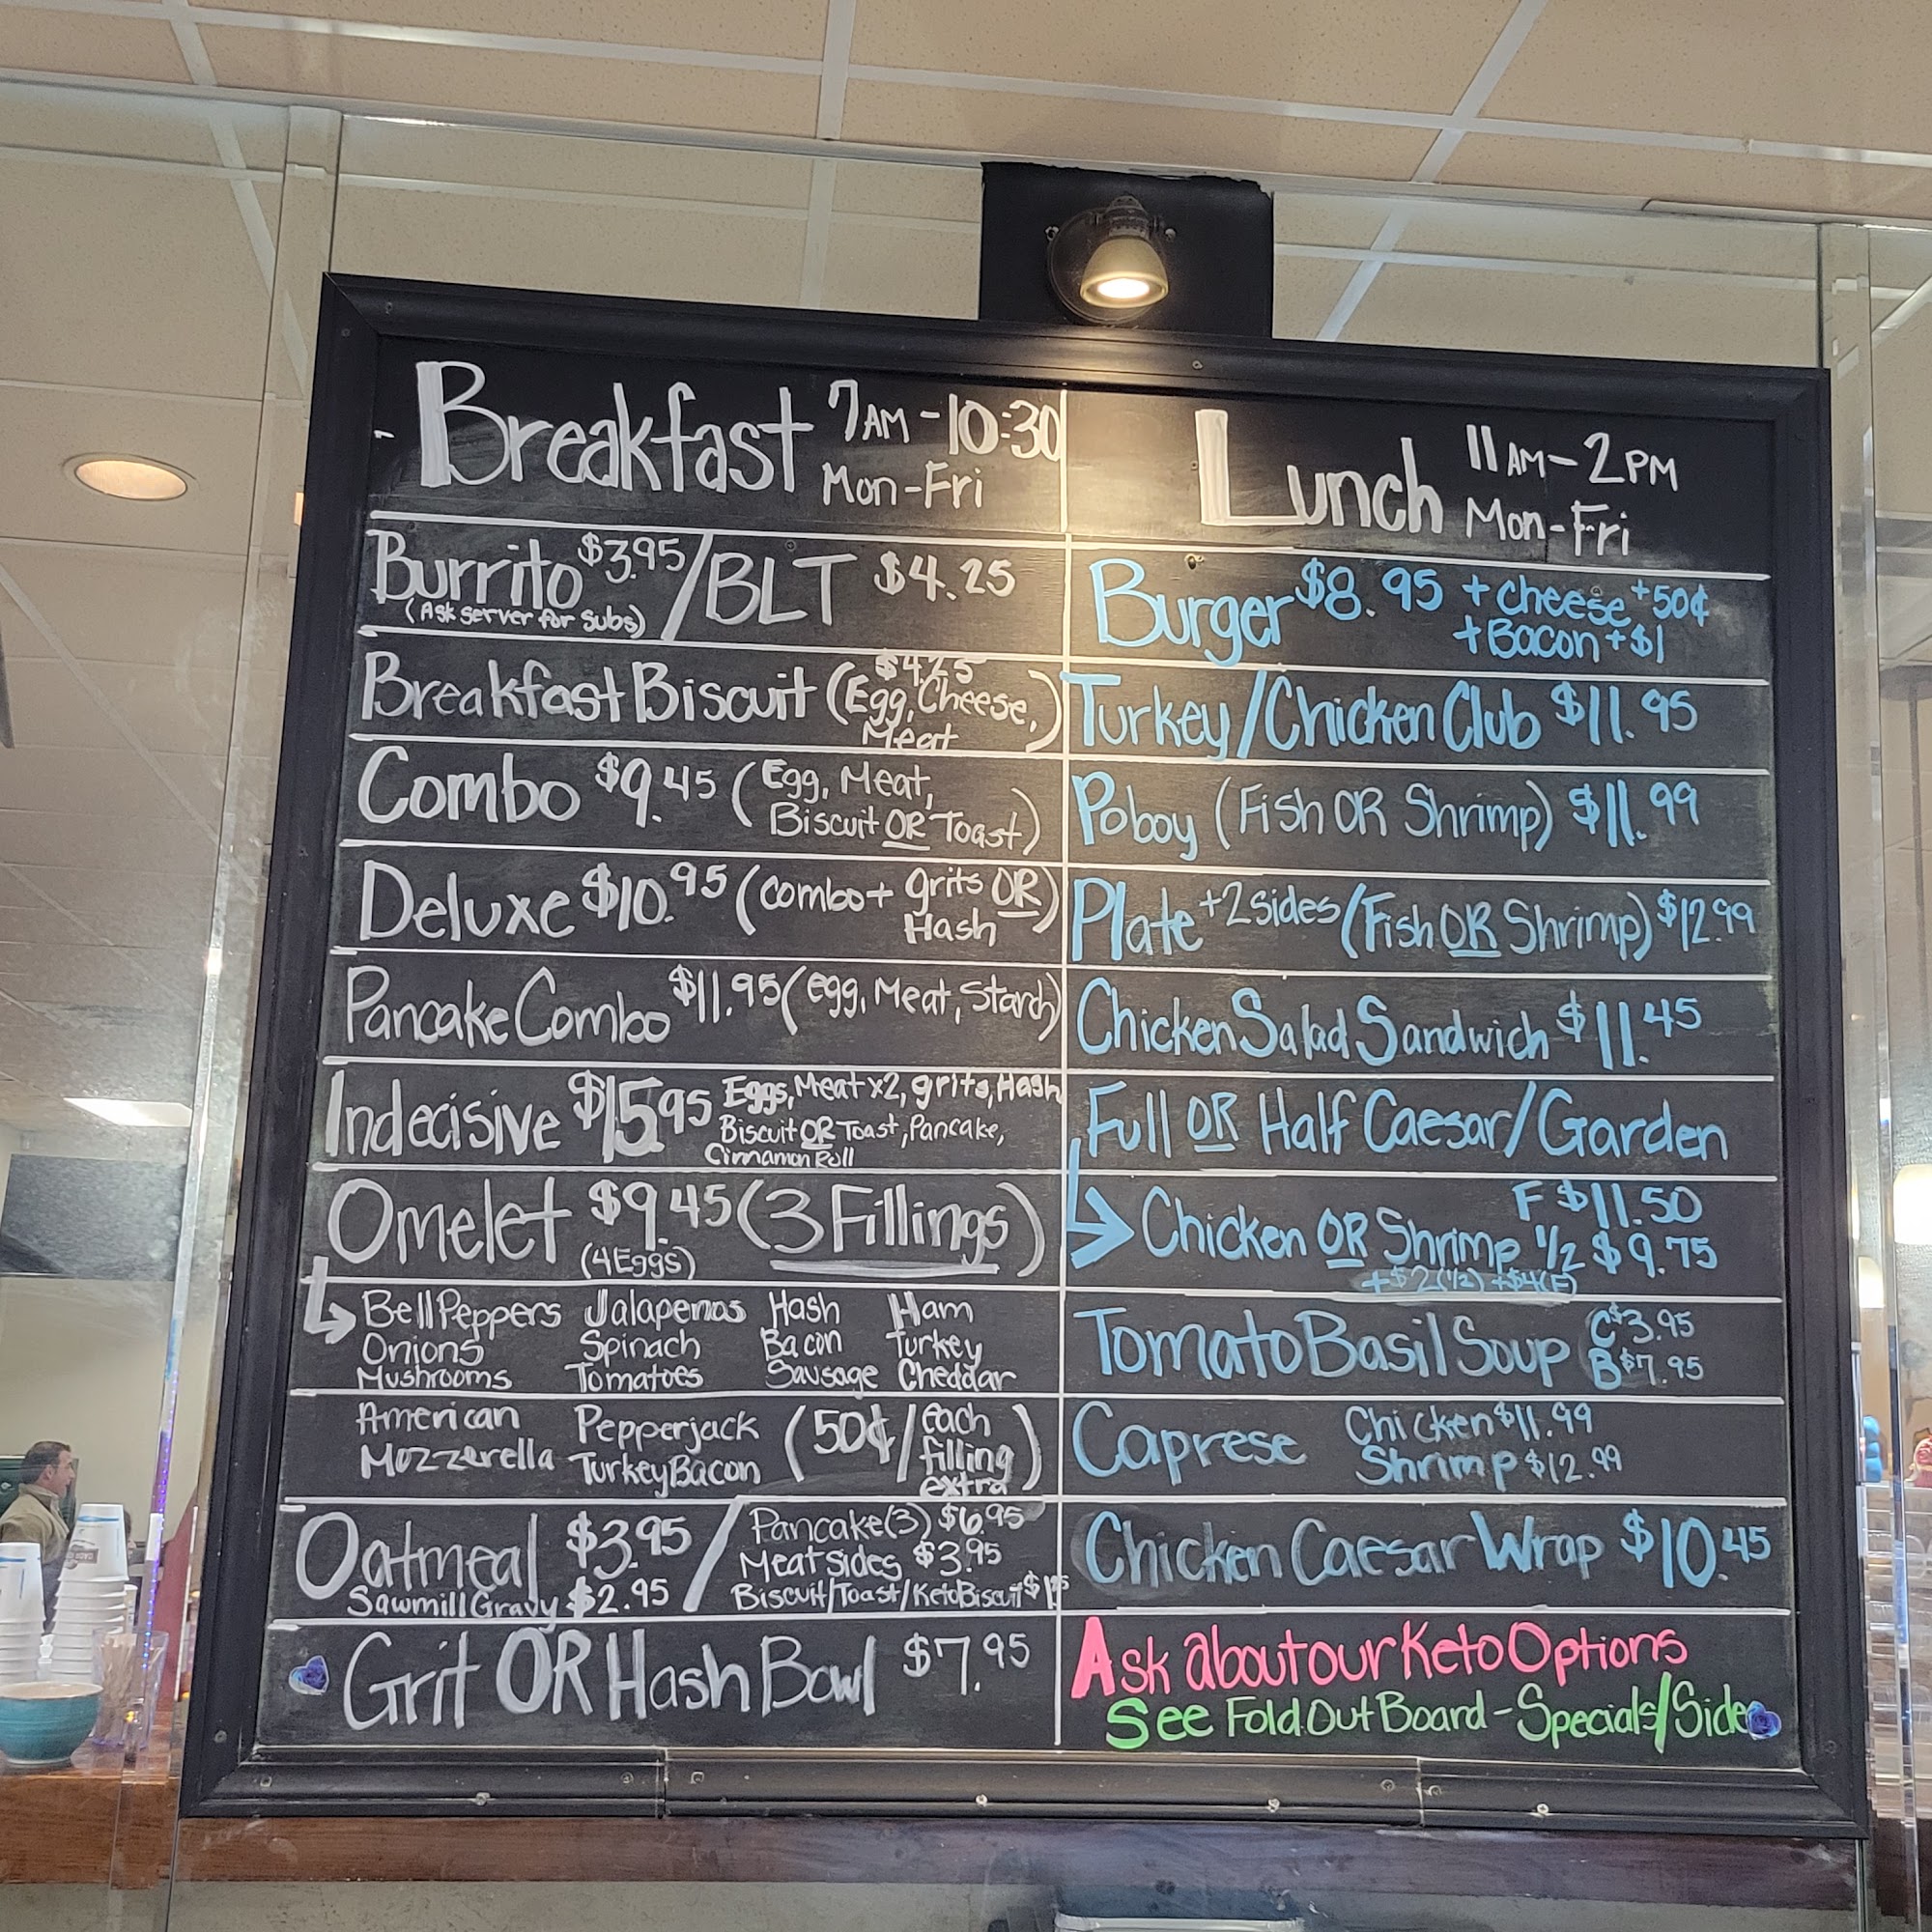 Breakfast 7AM-10:30
Mon-Fri
Burrito $3.95/BLT $4.25
(Ask server for subs)
Breakfast Biscuit ($4.25
Egg, Cheese,)
Meat
Combo $9.45 (Egg, Meat,
Biscuit OR Toast)
Deluxe $10.95 (combo+ grits OR)
Hash
Pancake Combo $11.95 (egg, Meat, Starch)
Indecisive $15.95 Eggs, Meat x2, grits, Hash
Biscuit OR Toast, Pancake,
Cinnamon Roll
Omelet $9.45 (3 Fillings)
(4 Eggs)
Bell Peppers Jalapenos Hash Ham
Onions Spinach Bacon Turkey
Mushrooms Tomatoes Sausage Cheddar
American Pepperjack (50¢/each
Mozzerella Turkey Bacon filling
extra)
Oatmeal $3.95 / Pancake(3) $6.95
Meat sides $3.95
Sawmill Gravy $2.95 Biscuit/Toast/Keto Biscuit
Grit OR Hash Bowl $7.95
Lunch 11AM-2PM
Mon-Fri
Burger $8.95 + cheese +50¢
+ Bacon +$1
Turkey/Chicken Club $11.95
Poboy (Fish OR Shrimp) $11.99
Plate +2 sides (Fish OR Shrimp) $12.99
Chicken Salad Sandwich $11.45
Full OR Half Caesar/Garden
F $11.50
Chicken OR Shrimp 1/2 $9.75
+$2(1/2) +$4(F)
Tomato Basil Soup C $3.95
B $7.95
Caprese Chicken $11.99
Shrimp $12.99
Chicken Caesar Wrap $10.45
Ask about our Keto Options
See Fold Out Board - Specials/Side